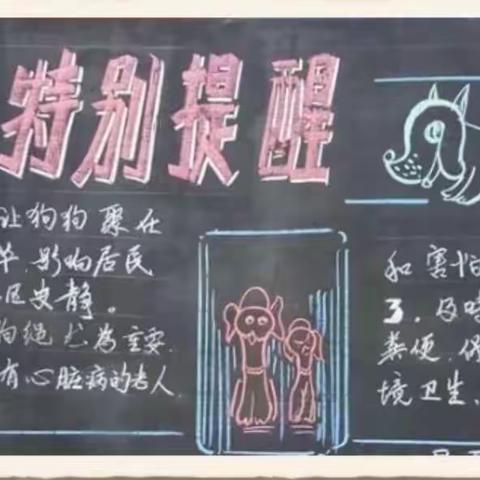 特别提醒
让狗狗聚在
影响居民
安静。
狗绳尤为重要.
有心脏病的老人
和害怕
3.及时
粪便,保
境卫生、